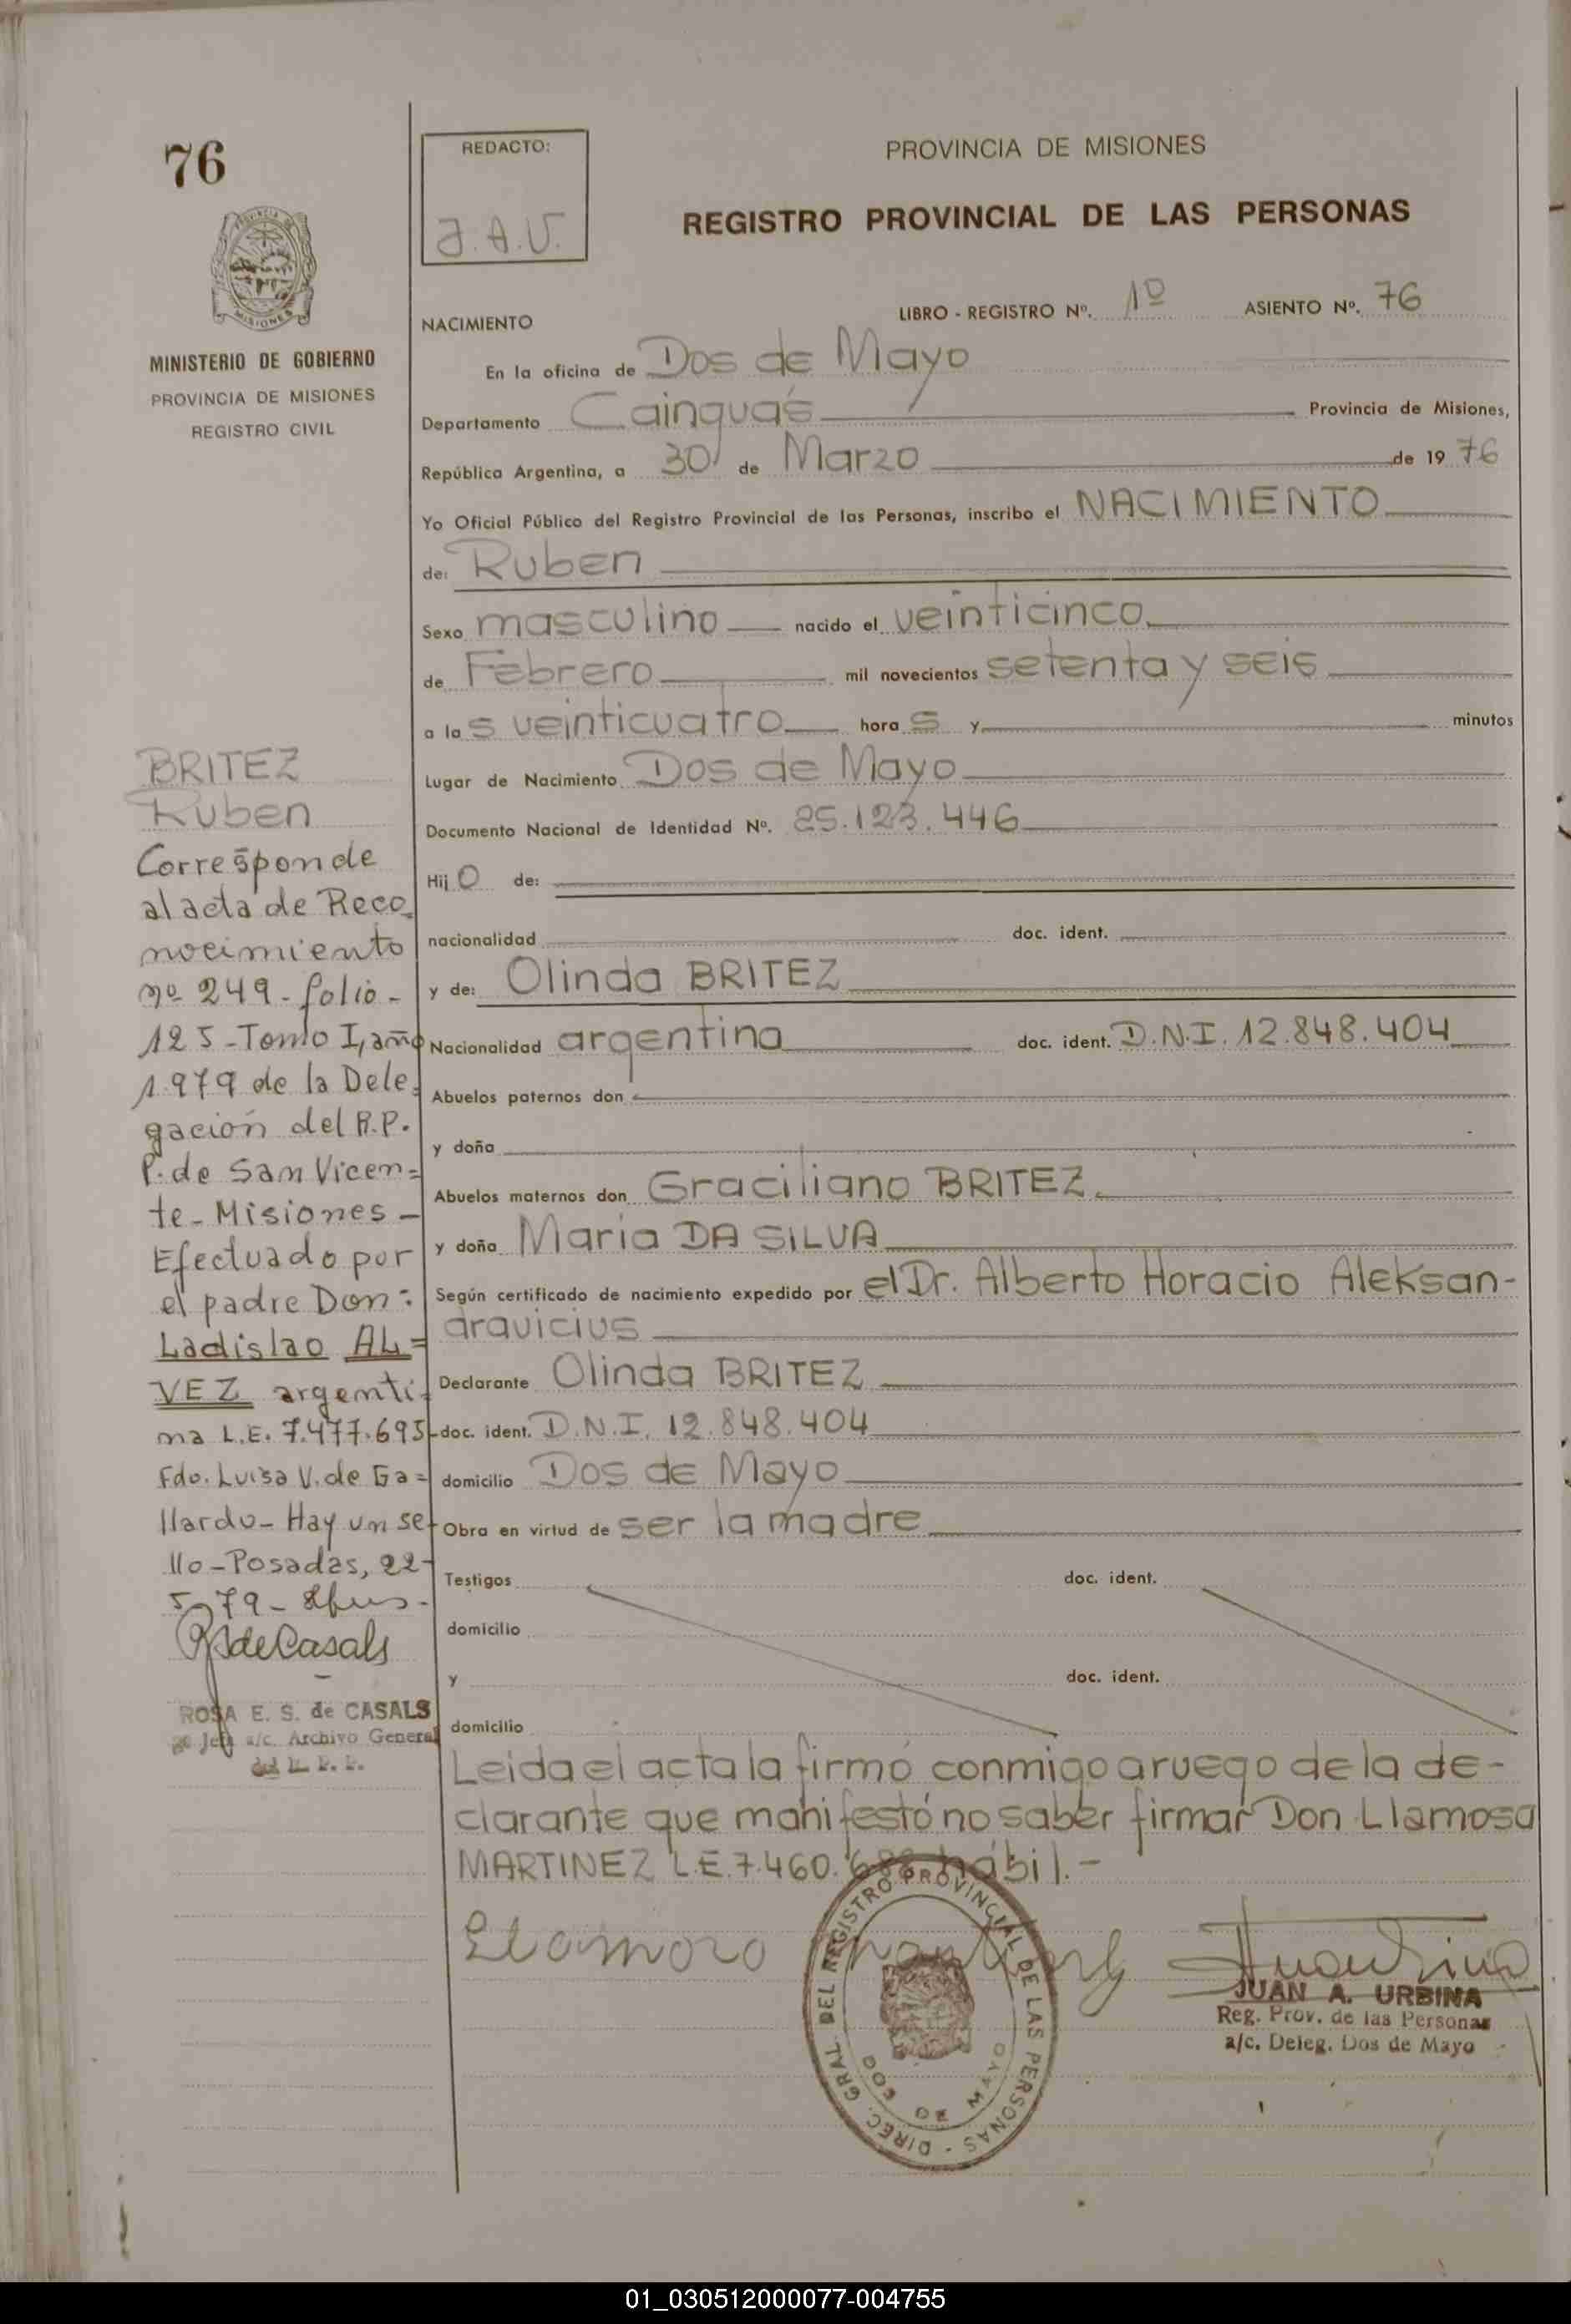 76
MINISTERIO DE GOBIERNO
PROVINCIA DE MISIONES
REGISTRO CIVIL
REDACTO:
J.A.U.
PROVINCIA DE MISIONES
REGISTRO PROVINCIAL DE LAS PERSONAS
LIBRO - REGISTRO Nº. 1º ASIENTO Nº. 76
NACIMIENTO
En la oficina de Dos de Mayo
Departamento Cainguás Provincia de Misiones,
República Argentina, a 30 de Marzo de 19 76
Yo Oficial Público del Registro Provincial de las Personas, inscribo el NACIMIENTO
de: Ruben
Sexo masculino nacido el veinticinco
de Febrero mil novecientos setenta y seis
a las veinticuatro horas y minutos
Lugar de Nacimiento Dos de Mayo
Documento Nacional de Identidad Nº. 25.123.446
Hijo de:
nacionalidad doc. ident.
y de: Olinda BRITEZ
Nacionalidad argentina doc. ident. D.N.I. 12.848.404
Abuelos paternos don
y doña
Abuelos maternos don Graciliano BRITEZ
y doña Maria DA SILVA
Según certificado de nacimiento expedido por el Dr. Alberto Horacio Aleksan-
dravicius
Declarante Olinda BRITEZ
doc. ident. D.N.I. 12.848.404
domicilio Dos de Mayo
Obra en virtud de ser la madre
Testigos doc. ident.
domicilio
y doc. ident.
domicilio
Leida el acta la firmó conmigo a ruego de la de-
clarante que manifestó no saber firmar Don Llamosa
MARTINEZ L.E. 7.460. hábil.-
JUAN A. URBINA
Reg. Prov. de las Personas
a/c. Deleg. Dos de Mayo
DIREC. GRAL. DEL REGISTRO PROVINCIAL DE LAS PERSONAS -
DOS DE MAYO
BRITEZ
Ruben
Corresponde
al acta de Reco
nocimiento
nº 249 - folio -
125 - Tomo I, año
1.979 de la Dele
gación del R.P.
P. de San Vicen=
te - Misiones -
Efectuado por
el padre Don:
Ladislao AL=
VEZ argenti-
na L.E. 7.477.695-
Fdo. Luisa V. de Ga=
llardo - Hay un se-
llo - Posadas, 22-
5-79 -
de Casals
ROSA E. S. de CASALS
Jefe a/c. Archivo General
del R. P. P.
01_030512000077-004755